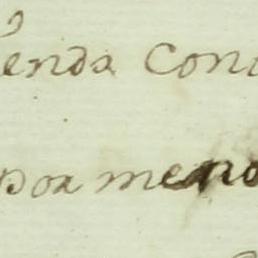 enda con
por meno